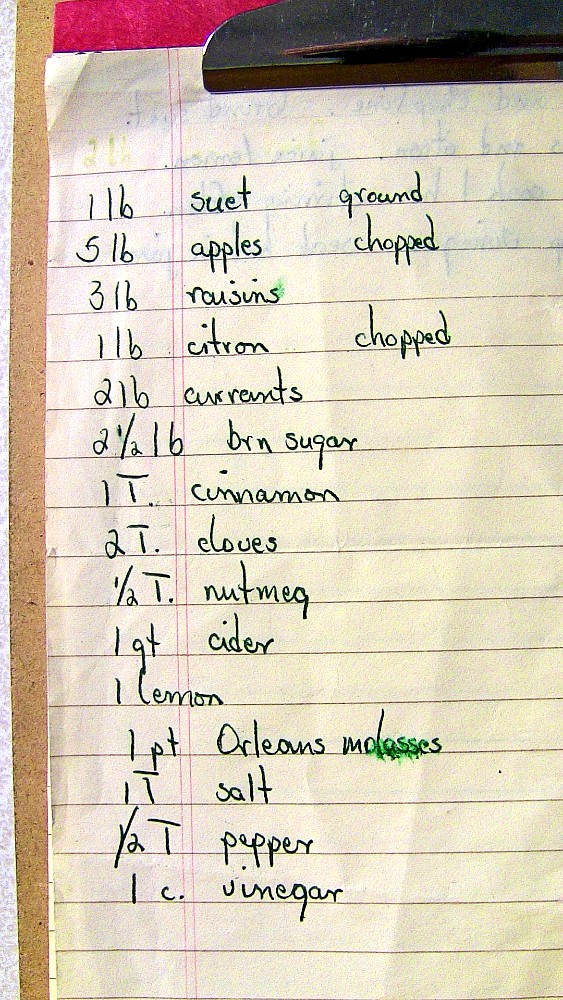 1 lb suet ground
5 lb apples chopped
3 lb raisins
1 lb citron chopped
2 lb currants
2 1/2 lb brn sugar
1 T. cinnamon
2 T. cloves
1/2 T. nutmeg
1 qt cider
1 lemon
1 pt Orleans molasses
1 T salt
1/2 T pepper
1 c. vinegar